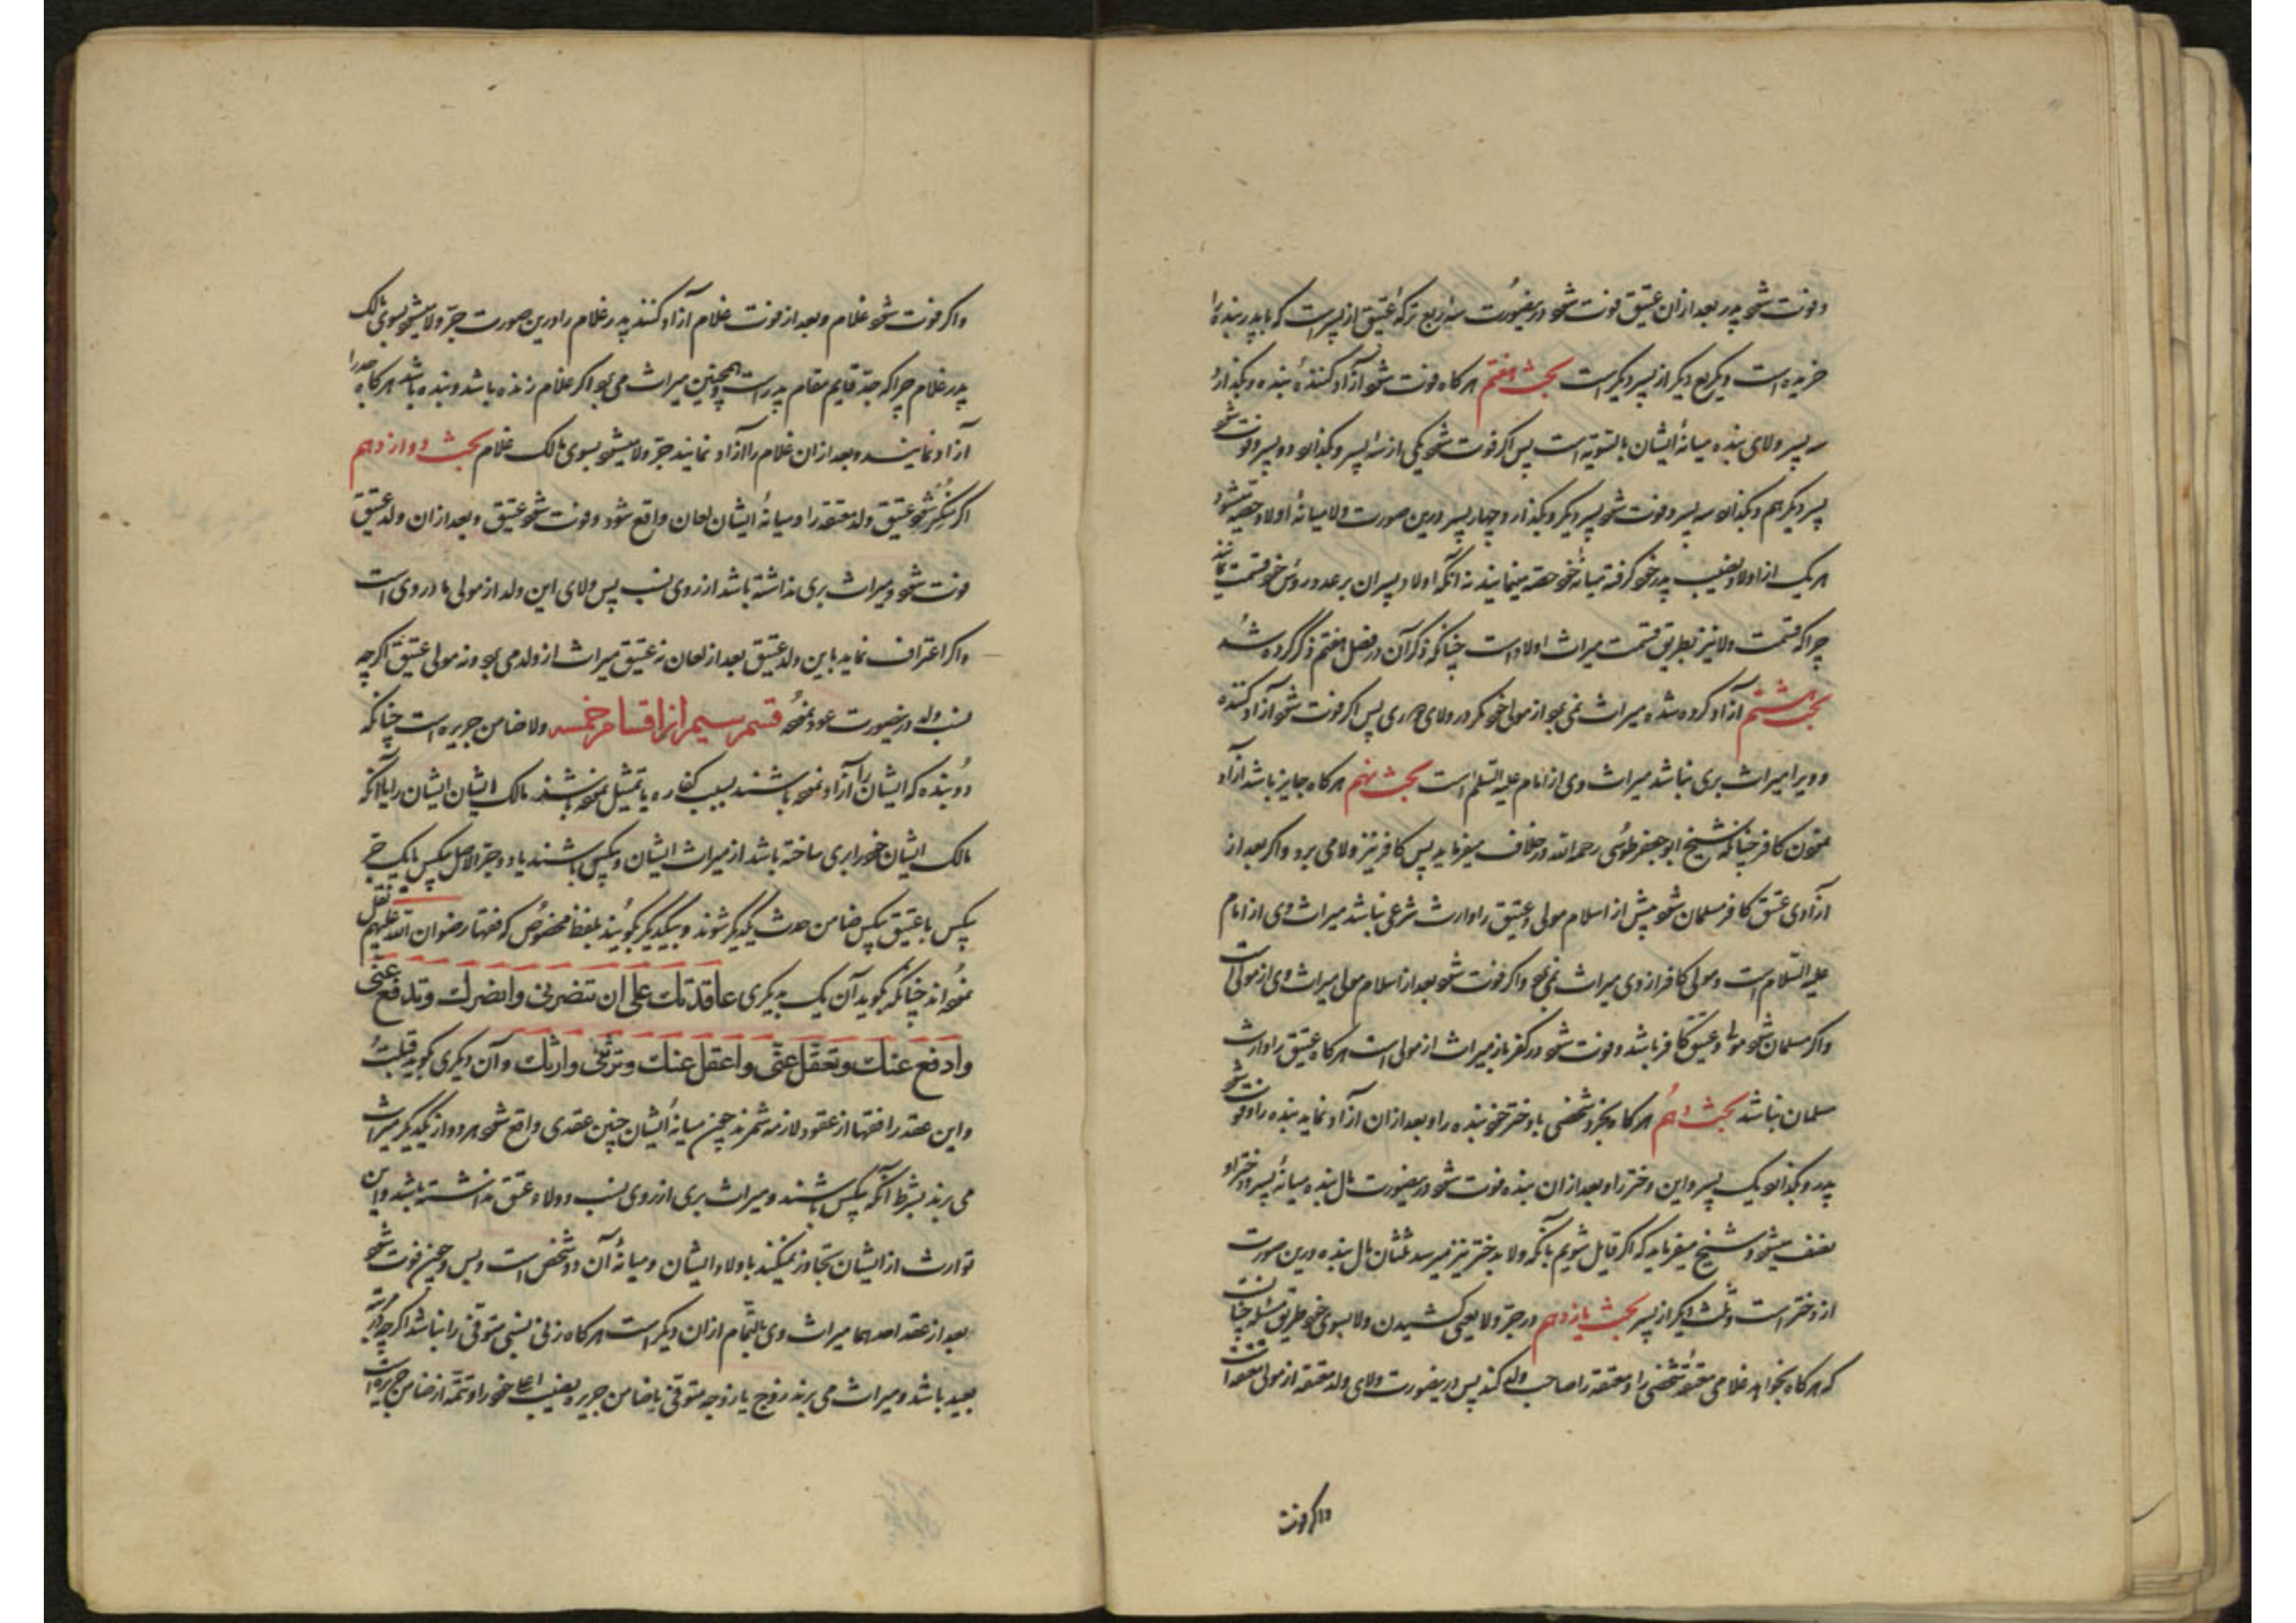 و فوت شود پدر بعد ازان عتیق فوت شود درینصورت سه ربع ترکهٔ عتیق از پسریست که با پدر بنده را
خریده است و یکربع دیگر از پسر دیگر است بحث هفتم هر کاه فوت شود آزاد کنندهٔ بنده و بکذارد
سه پسر ولای بنده میانهٔ ایشان بالتسویه است پس اکر فوت شود یکی از سه پسر و بکذارد دو پسر و فوت شود
پسر دیکر هم و بکذارد سه پسر و فوت شود پسر دیکر و بکذارد چهار پسر درین صورت ولا میانهٔ اولاد حصه میشود
هر یک از اولاد نصیب پدر خود کرفته میانهٔ خود حصه مینمایند نه آنکه اولاد پسران بر عدد رؤس خود قسمت نمایند
چرا که قسمت ولا نیز بطریق قسمت میراث اولاد است چنانکه ذکر آن در فصل هفتم ذکر کرده شد
بحث هشتم آزاد کرده شده میراث نمی برد از مولی خود مکر در ولای پس اکر فوت شود آزاد کننده
و ویرا میراث بری نباشد میراث وی از امام علیه السلام است بحث نهم هر کاه جایز باشد آزاد
نمودن کافر چنانکه شیخ ابو جعفر طوسی رحمه الله در خلاف میفرماید پس کافر نیز ولا می برد و اکر بعد از
آزادی عتیق کافر مسلمان شود پیش از اسلام مولی و عتیق را وارث شرعی نباشد میراث وی از امام
علیه السلام است و مولی کافر از وی میراث نمی برد و اکر فوت شود بعد از اسلام مولی میراث وی از مولی است
و اکر مسلمان شود مولی و عتیق کافر باشد و فوت شود در کفر باز میراث از مولی است هر کاه عتیق را وارث
مسلمان نباشد بحث دهم هر کاه بخرد شخصی با دختر خود بنده را و بعد ازان آزاد نماید بنده را و فوت شود
پدر و بکذارد یک پسر و این دختر را و بعد ازان بنده فوت شود درینصورت مال بنده میانهٔ پسر و دختر او
نصف میشود و شیخ میفرماید که اکر قایل شویم بآنکه ولا بدختر نیز میرسد ثلثان مال بنده درین صورت
از دختر است و ثلث دیکر از پسر بحث یازدهم در جرّ ولا یعنی کشیدن ولا بسوی خود چنانست
که هر کاه بخواهد غلامی معتقهٔ شخصی را و معتقه را صاحب ولد کند پس درینصورت ولای ولد معتقه از مولی معتقه است
و اکر فوت
و اکر فوت شود غلام و بعد از فوت غلام آزاد کنند پدر غلام را درین صورت جرّ ولا میشود بسوی مالک
پدر غلام چرا که جدّ قایم مقام پدر است و همچنین میراث می برد اکر غلام زنده باشد و بنده باشد هر کاه جد را
آزاد نمایند و بعد ازان غلام را آزاد نمایند جرّ ولا میشود بسوی مالک غلام بحث دوازدهم
اکر منکر شود عتیق ولد معتقه را و میانهٔ ایشان لعان واقع شود و فوت شود عتیق و بعد ازان ولد عتیق
فوت شود و میراث بری نداشته باشد از روی نسب پس ولای این ولد از مولی مادر وی است
و اکر اعتراف نماید باین ولد عتیق بعد از لعان نه عتیق میراث از ولد می برد و نه مولی عتیق اکرچه
نسب ولد درینصورت عود نموده قسم سیم از اقسام خمسه ولا ضامن جریره است چنانکه
دو بنده که ایشان را آزاد نموده باشند بسبب کفاره یا تمثیل نموده باشند مالک ایشان ایشان را یا آنکه
مالک ایشان خود را بری ساخته باشد از میراث ایشان و بیکس باشند یا دو حرّ الاصل بیکس یا یک حرّ
بیکس با عتیق بیکس ضامن حدث یکدیکر شوند و بیکدیکر بکویند بلفظ مخصوص که فقها رضوان الله علیهم نقل
نموده اند چنانکه بکوید آن یک به دیکری عاقدتك على ان تنصرنى وانصرك وتدفع عنى
وادفع عنك وتعقل عنى واعقل عنك وترثنى وارثك و آن دیکری بکوید قبلتُ
و این عقد را فقها از عقود لازمه شمرند چون میانهٔ ایشان چنین عقدی واقع شود هر دو از یکدیکر میراث
می برند بشرط آنکه بیکس باشند و میراث بری از روی نسب و ولاء عتق نداشته باشند و این
توارث از ایشان تجاوز نمیکند با ولاد ایشان و میانهٔ آن دو شخص است و بس و چون فوت شود
بعد از عقد احدهما میراث وی بالتمام ازان دیکر است هر کاه زنی نسبی متوفی را نباشد اکرچه
بعید باشد و میراث می برند زوج یا زوجه متوفی با ضامن جریره نصیب اعلی خود را و تتمه از ضامن جریره است